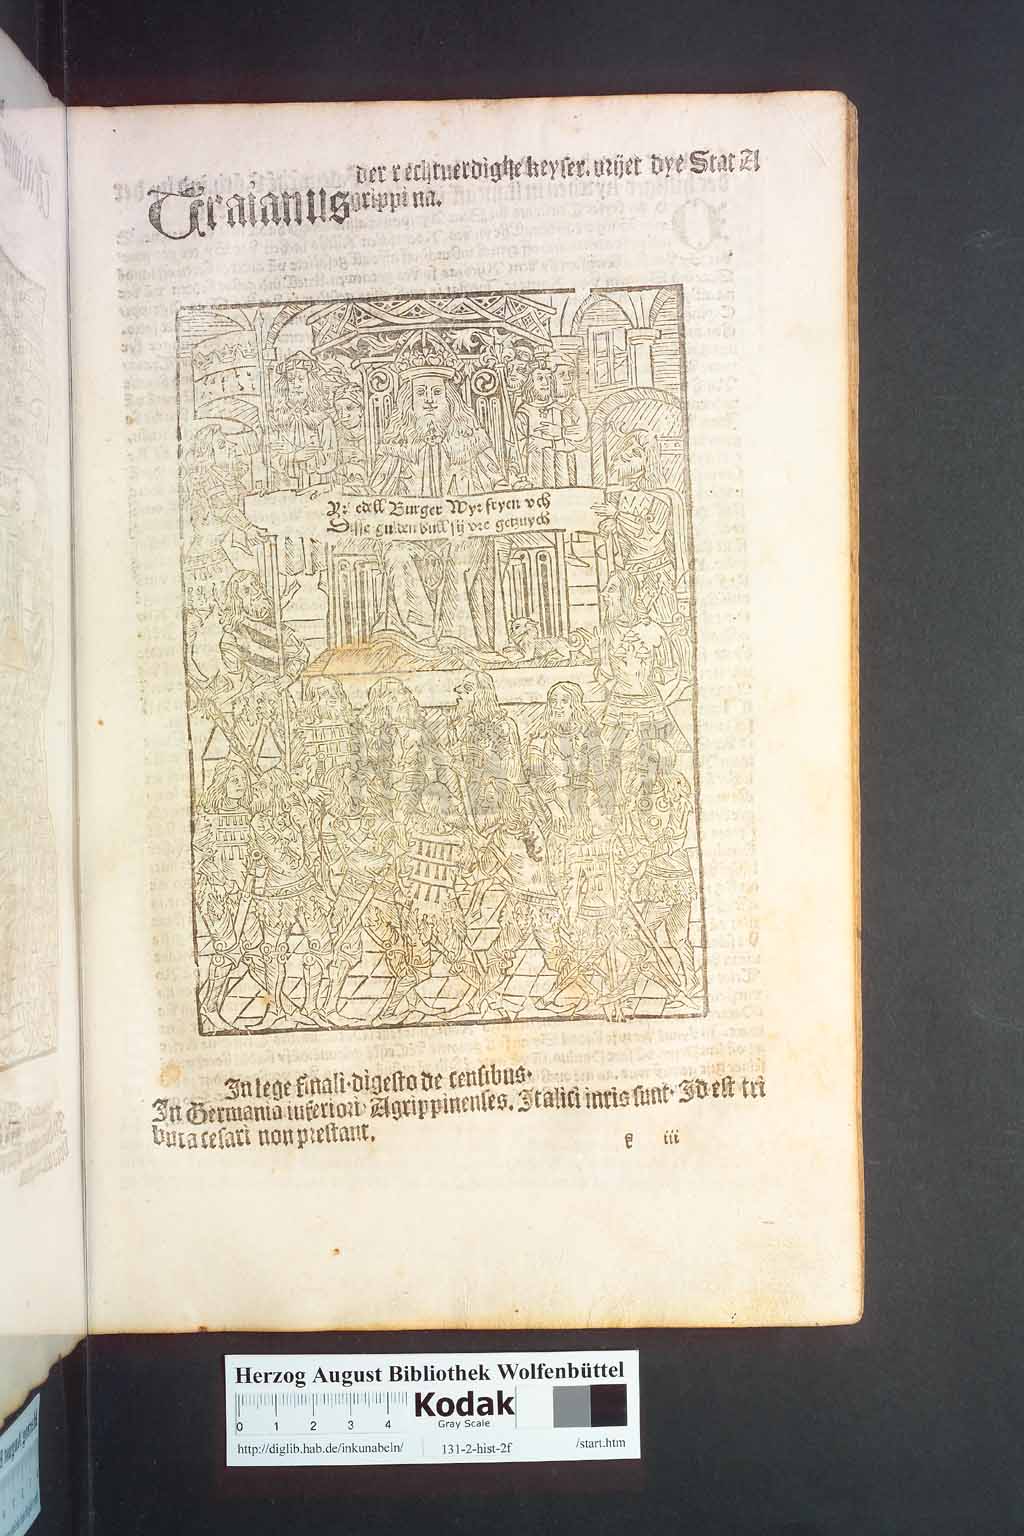 der rechtuerdighe keyser. vrijet dye Stat A
Traianus grippina.
Yr edell Burger Wyr fryen vch
Disse gulden bull sij vre getzuych
In lege finali· digesto de censibus·
In Germania inferiori Agrippinenses. Italici iuris sunt· Id est tri
buta cesari non prestant.
g iii
Herzog August Bibliothek Wolfenbüttel
0 1 2 3 4
Kodak
Gray Scale
http://diglib.hab.de/inkunabeln/ 131-2-hist-2f /start.htm